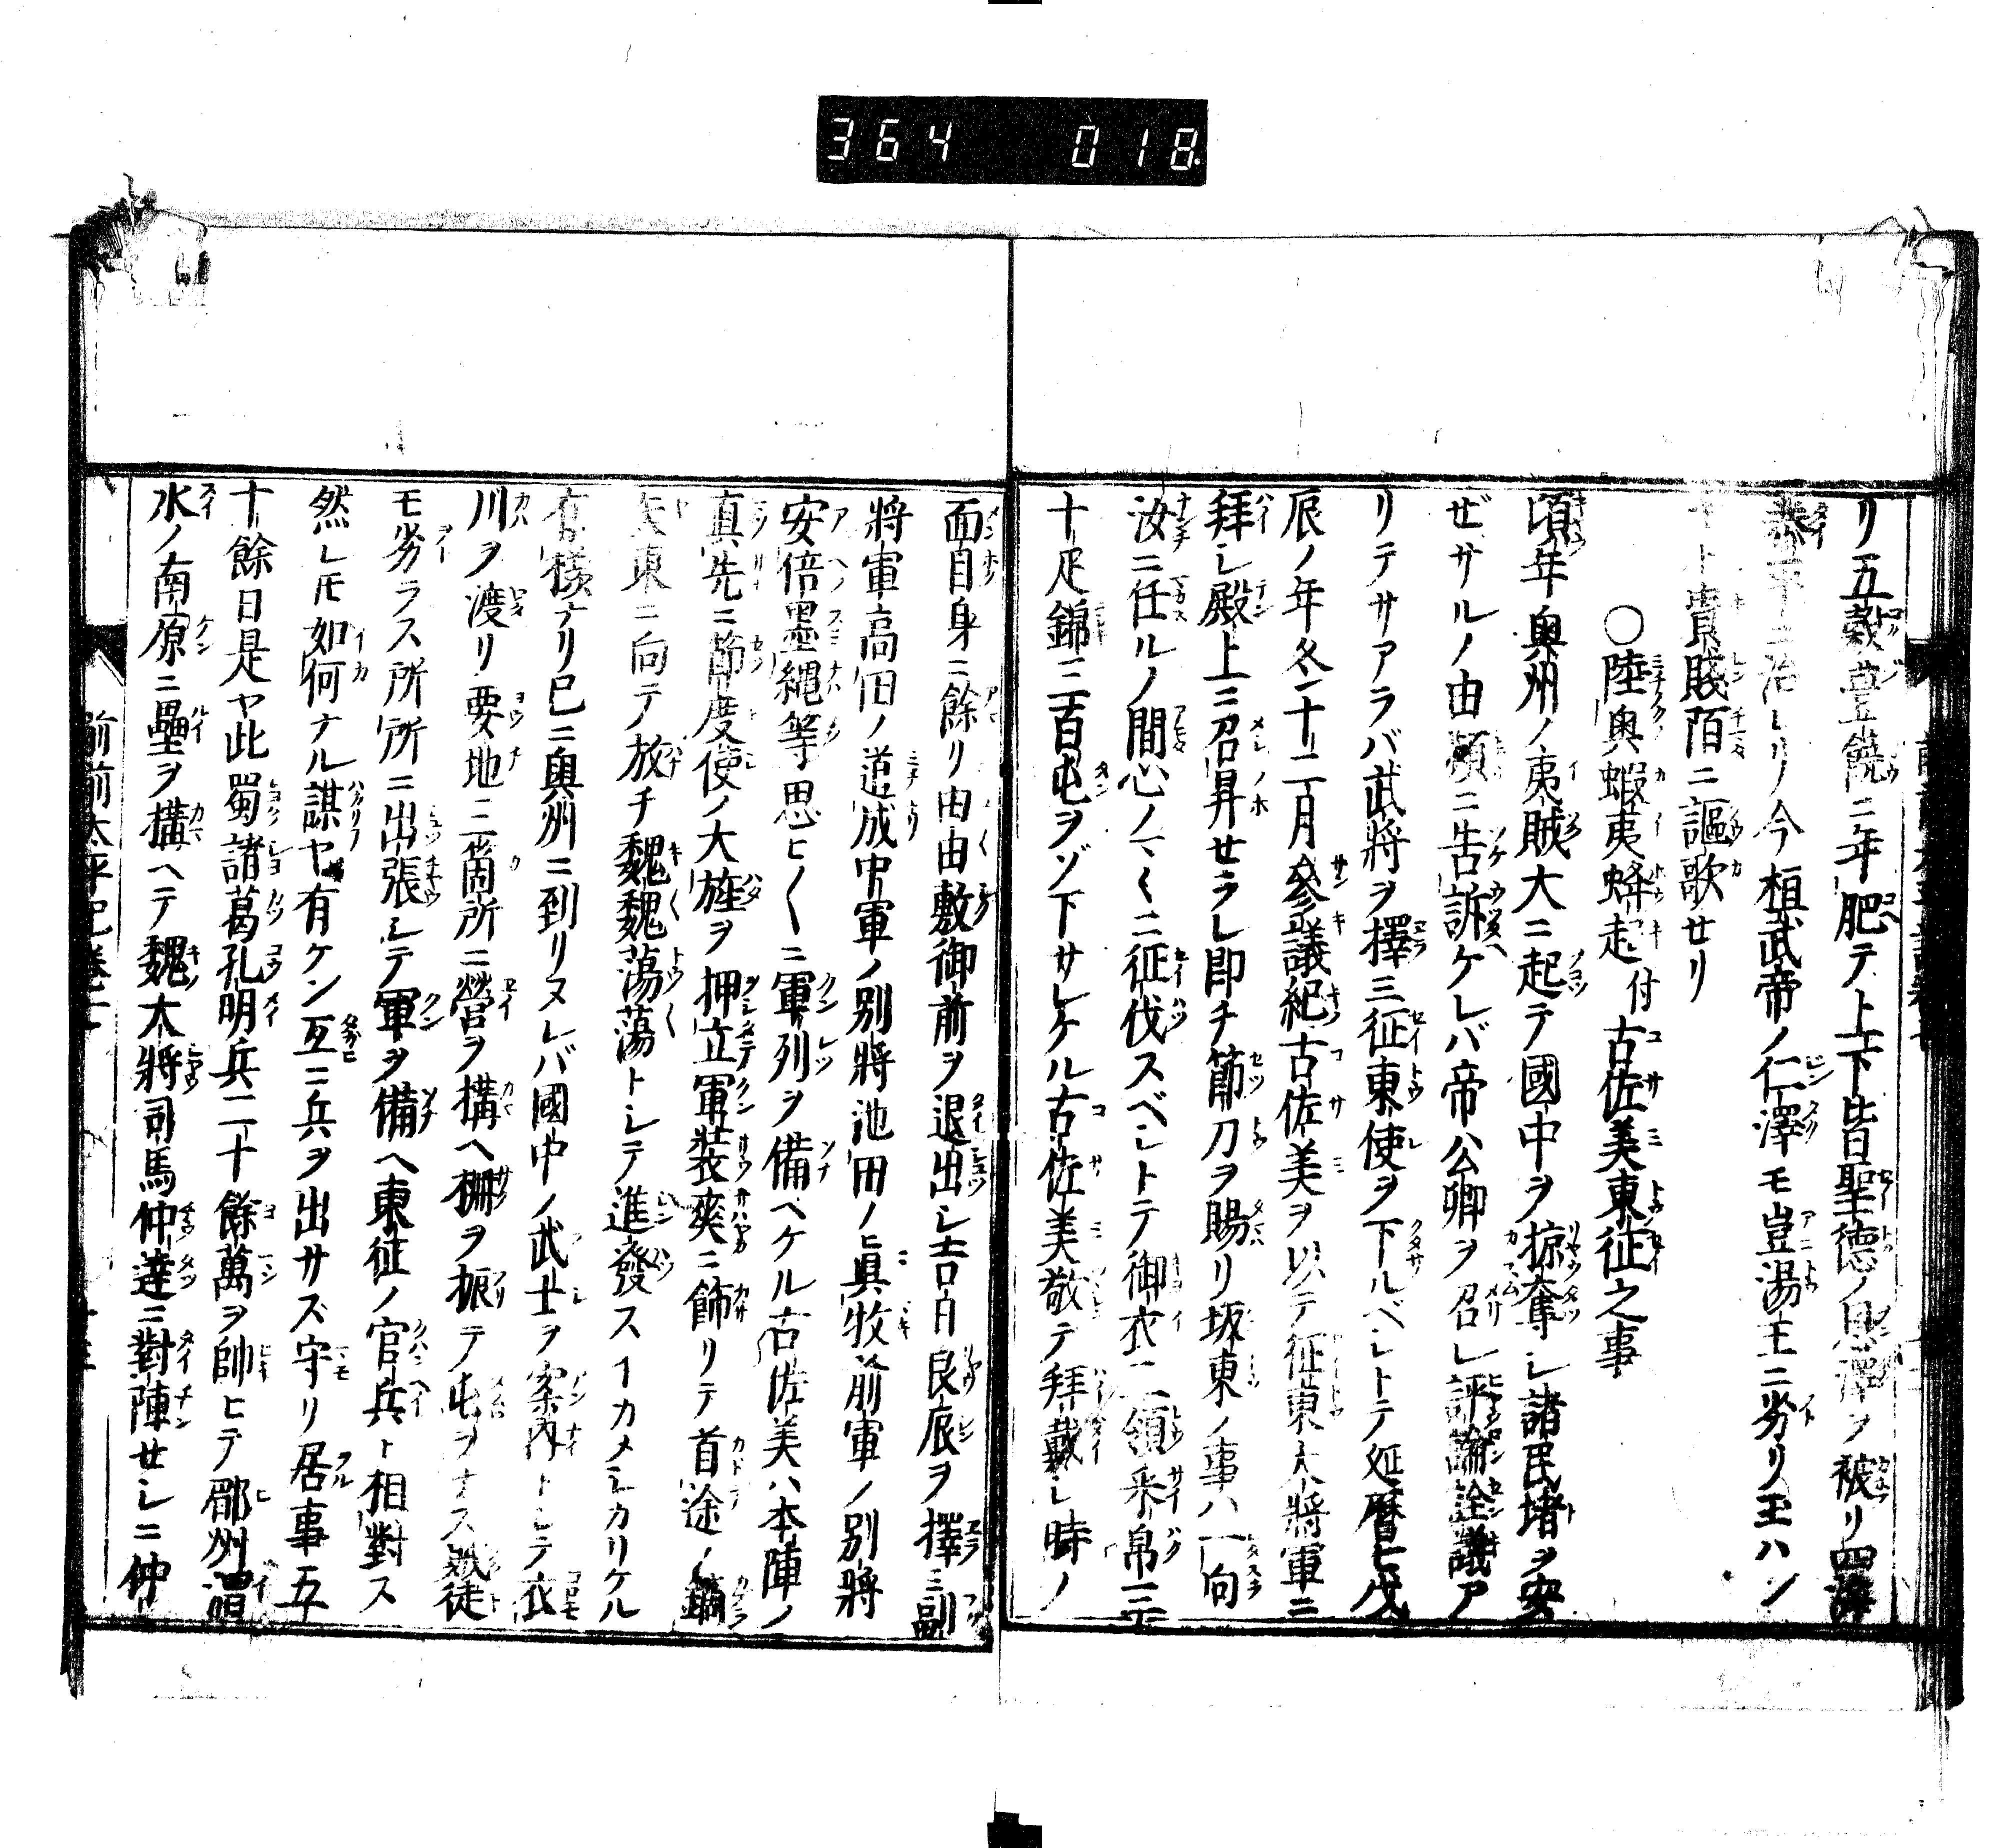 364 018
リ五穀豊饒ニ年肥テ上下皆聖徳ノ恩澤ヲ被リ四海
泰平ニ治レリ今桓武帝ノ仁澤モ豈湯王ニ劣リ玉ハン
ヤト貴賤陌ニ謳歌せリ
〇陸奥蝦夷蜂起付古佐美東征之事
頃年奥州ノ夷賊大ニ起テ國中ヲ掠奪し諸民堵ヲ安
ぜサルノ由頻ニ告訴ケレバ帝公卿ヲ召し評論詮議ア
リテサアラバ武將ヲ擇ミ征東使ヲ下ルベしトテ延暦七戊
辰ノ年冬十二月參議紀古佐美ヲ以テ征東大將軍ニ
拜し殿上ニ召昇せラレ即チ節刀ヲ賜リ坂東ノ事ハ一向
汝ニ任ルノ間心ノマヽニ征伐スベしトテ御衣二領采帛三
十疋錦三百屯ヲゾ下サレケル古佐美敬テ拜戴し時ノ
面目身ニ餘リ由由敷御前ヲ退出し吉日良辰ヲ擇ミ副
將軍高田ノ道成中軍ノ別將池田ノ眞牧前軍ノ別將
安倍墨縄等思ヒ〱ニ軍列ヲ備ヘケル古佐美ハ本陣ノ
真先ニ節度使ノ大旌ヲ押立軍装爽ニ飾リテ首途ノ鏑
矢東ニ向テ放チ魏魏蕩蕩トしテ進發スイカメしカリケル
有様ナリ已ニ奥州ニ到リヌレバ國中ノ武士ヲ案内トしテ衣
川ヲ渡リ要地三箇所ニ營ヲ構ヘ柵ヲ振テ屯ヲナス賊徒
モ劣ラス所所ニ出張しテ軍ヲ備ヘ東征ノ官兵ト相對ス
然レ𪜈如何ナル謀ヤ有ケン互ニ兵ヲ出サズ守リ居事五
十餘日是ヤ此蜀諸葛孔明兵二十餘萬ヲ帥ヒテ郿州渭
水ノ南原ニ壘ヲ構ヘテ魏大將司馬仲達ニ對陣せしニ仲
前前太平記巻十